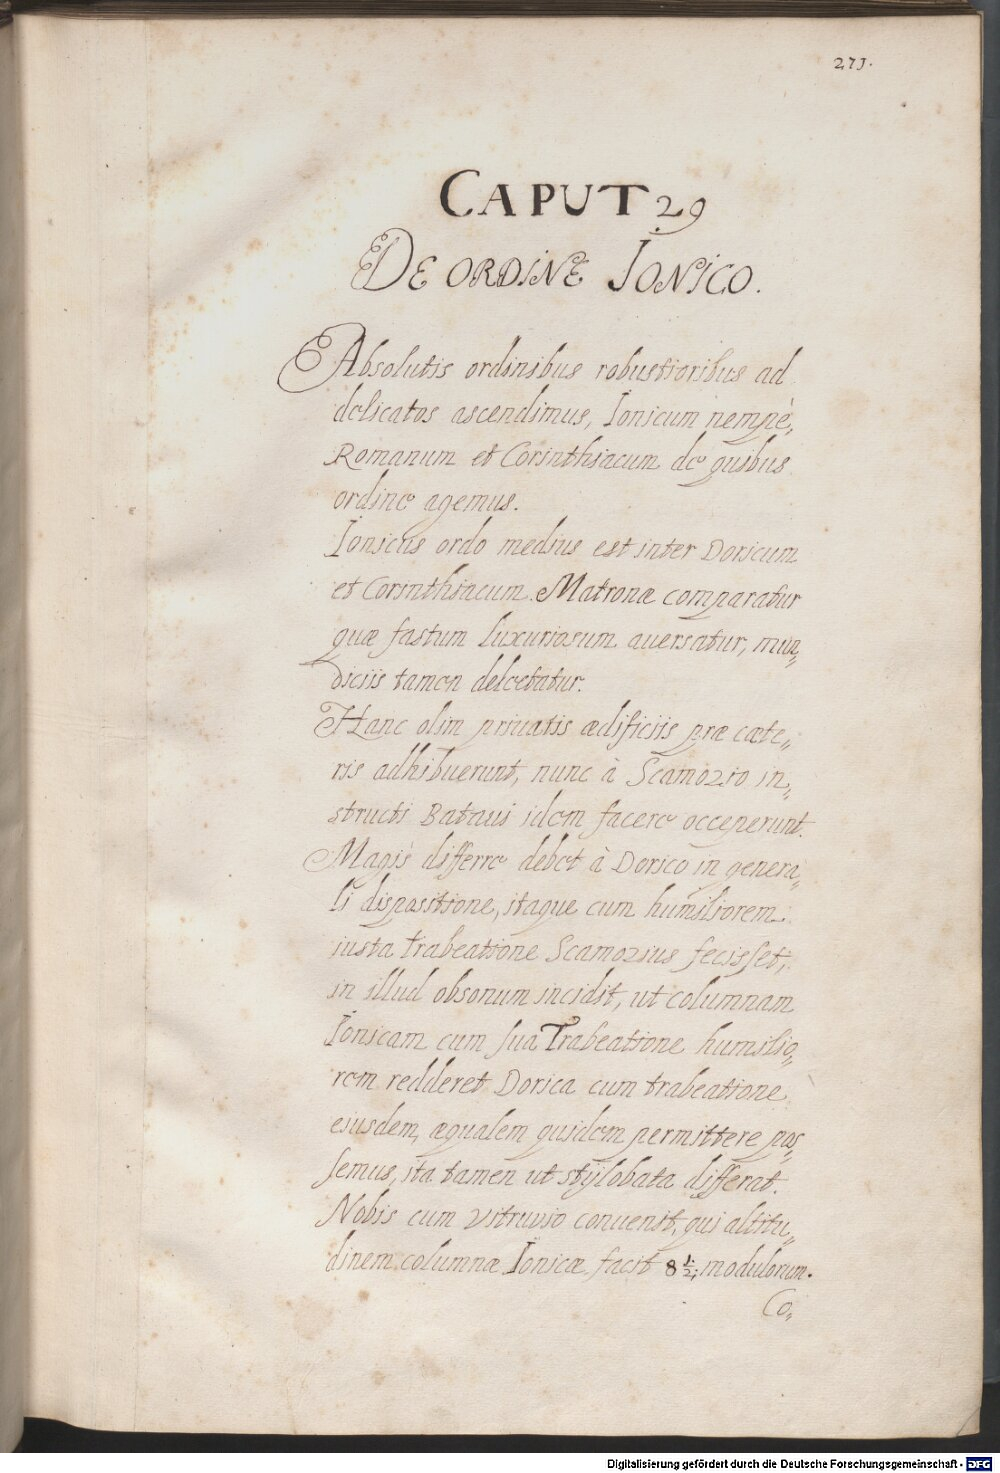 273.
CAPUT 29
DE ORDINE IONICO.
Absolutis ordinibus robustioribus ad
delicatos ascendimus, Ionicum nempè,,
Romanum et Corinthiacum de quibus
ordine agemus.
Ionicus ordo medius est inter Doricum
et Corinthiacum. Matronæ comparatur
quæ fastum luxuriosum auersatur, mun,,
diciis tamen delectatur.
Hanc olim priuatis ædificiis præ cæte,,
ris adhibuerunt, nunc à Scamozio in,,
structi Bataui idem facere occeperunt.
Magis differre debet à Dorico in genera,,
li dispositione, itaque cum humiliorem
iusta trabeatione Scamozius fecisset,
in illud obsonum incidit, ut columnam
Ionicam cum sua Trabeatione humilio,,
rem redderet Dorica cum trabeatione
eiusdem, æqualem quidem permittere pos,,
semus, ita tamen ut stylobata differat.
Nobis cum Vitruvio conuenit, qui altitu,,
dinem columnæ Ionicæ facit 8 1/2; modulorum.
Co,,
Digitalisierung gefördert durch die Deutsche Forschungsgemeinschaft - DFG